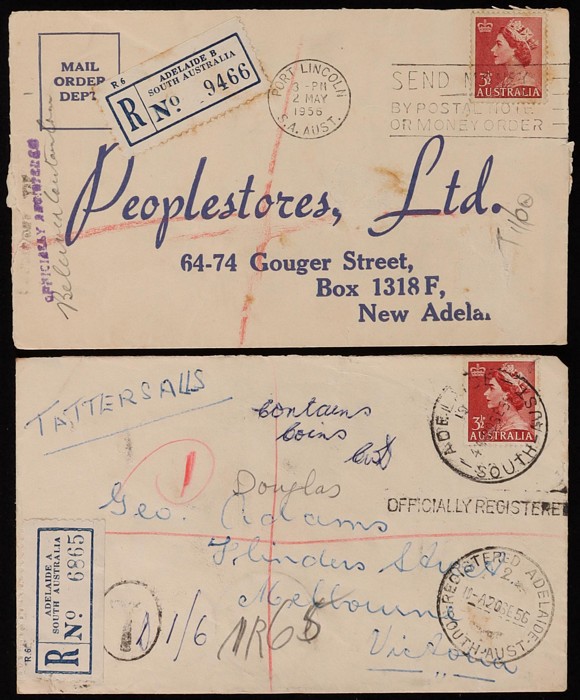 MAIL
ORDER
DEPT
R 6
ADELAIDE B
SOUTH AUSTRALIA
R No 9466
PORT LINCOLN
3 - PM
2 MAY
1956
S.A. AUST.
SEND
BY POSTAL NOTE
OR MONEY ORDER
3½D
AUSTRALIA
OFFICIALLY REGISTERED
Peoplestores, Ltd.
T 1/00
64-74 Gouger Street,
Box 1318 F,
New Adelai
TATTERSALLS
contains
coins
1
3½D
AUSTRALIA
ADEL
SOUTH AUST
Douglas
OFFICIALLY REGISTERED
Geo. Adams
Flinders Street
Melbourne
Victoria
R 6
ADELAIDE A
SOUTH AUSTRALIA
R No 6865
1/6
1R65
REGISTERED ADELAIDE
SOUTH AUST